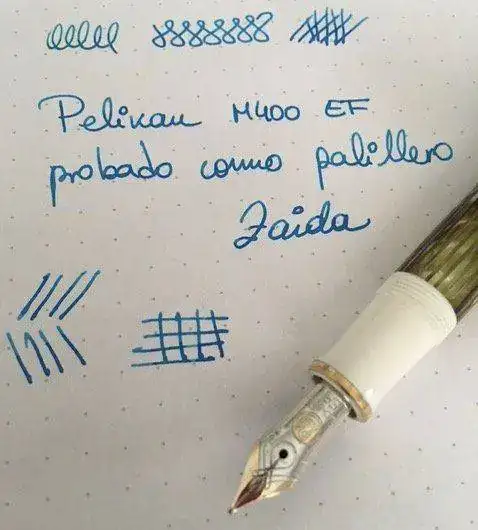 Pelikan M400 EF
probado como palillero
Zaida